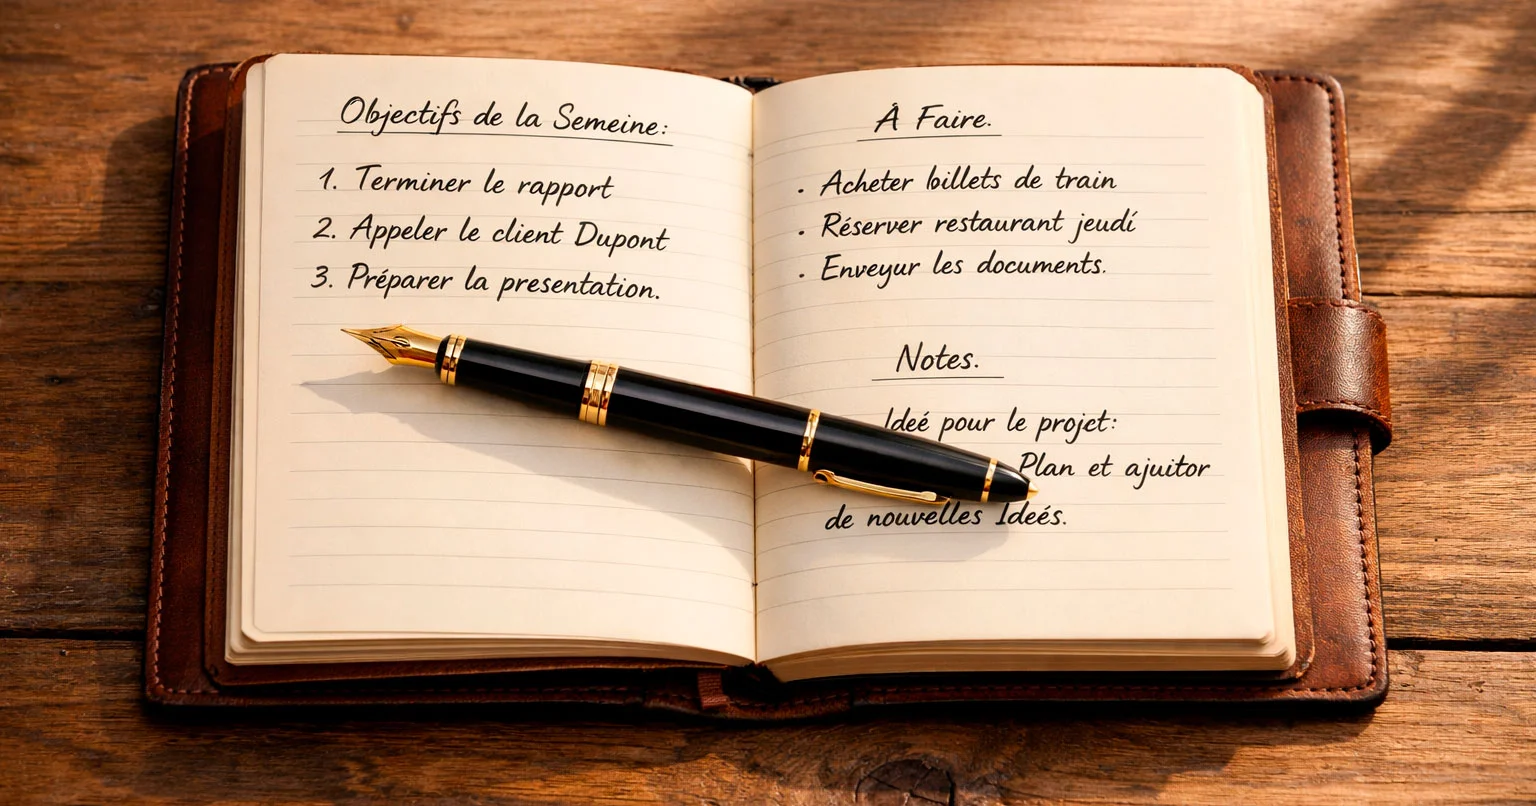 Objectifs de la Semeine:
1. Terminer le rapport
2. Appeler le client Dupont
3. Préparer la presentation.
À Faire.
. Acheter billets de train
. Réserver restaurant jeudi
. Enveyur les documents.
Notes.
Ideé pour le projet:
Plan et ajuitor
de nouvelles Ideés.